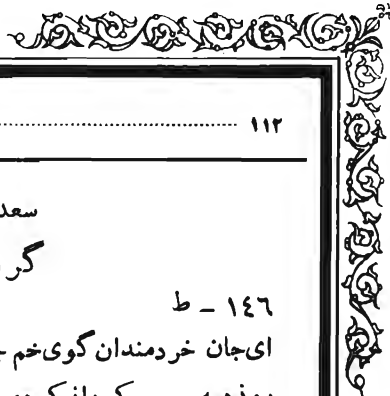 ۱۱۲
سعد
گر
١٤٦ – ط
ای‌جان خردمندان گوی‌خم